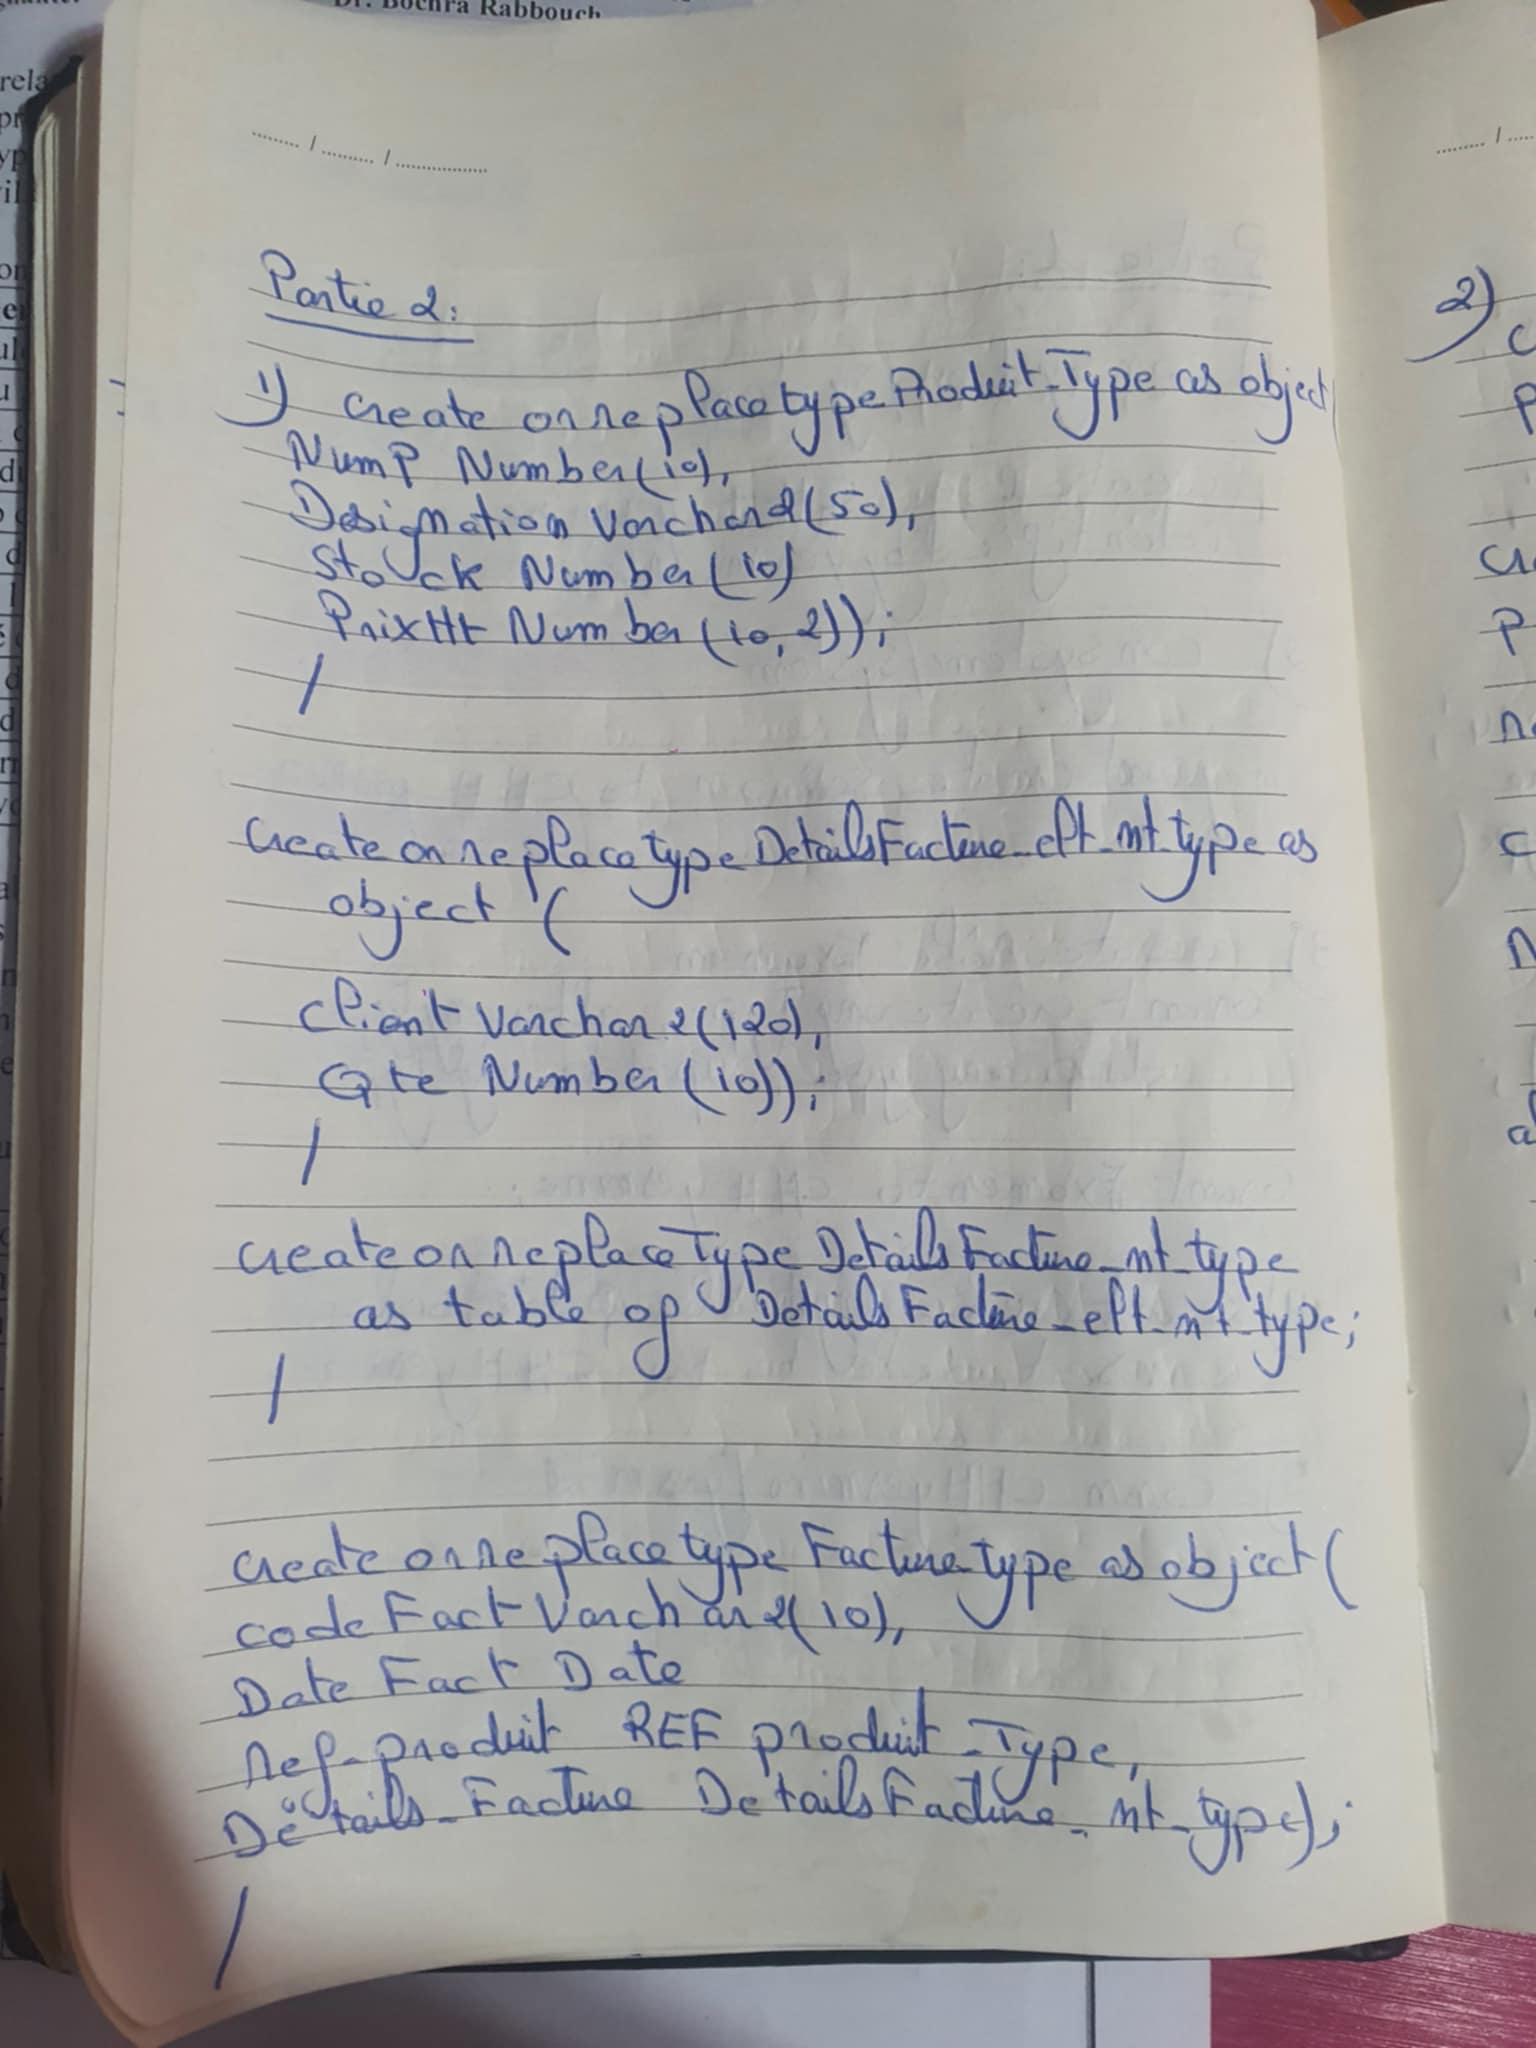 Dr. Bochra Rabbouch
Partie 2:
1) Create or replace type Produit_Type as object
NumP Number(10),
Designation Varchar2(50),
Stock Number(10)
PrixHt Number(10,2));
/
Create or replace type DetailsFacture_elt_nt_type as
object (
Client Varchar2(120),
Qte Number(10));
/
Create or replace Type DetailsFacture_nt_type
as table of DetailsFacture_elt_nt_type;
/
Create or replace type Facture_type as object(
codeFact Varchar2(10),
DateFact Date
ref_produit REF produit_Type,
Détails_Facture DetailsFacture_nt_type);
/
2)